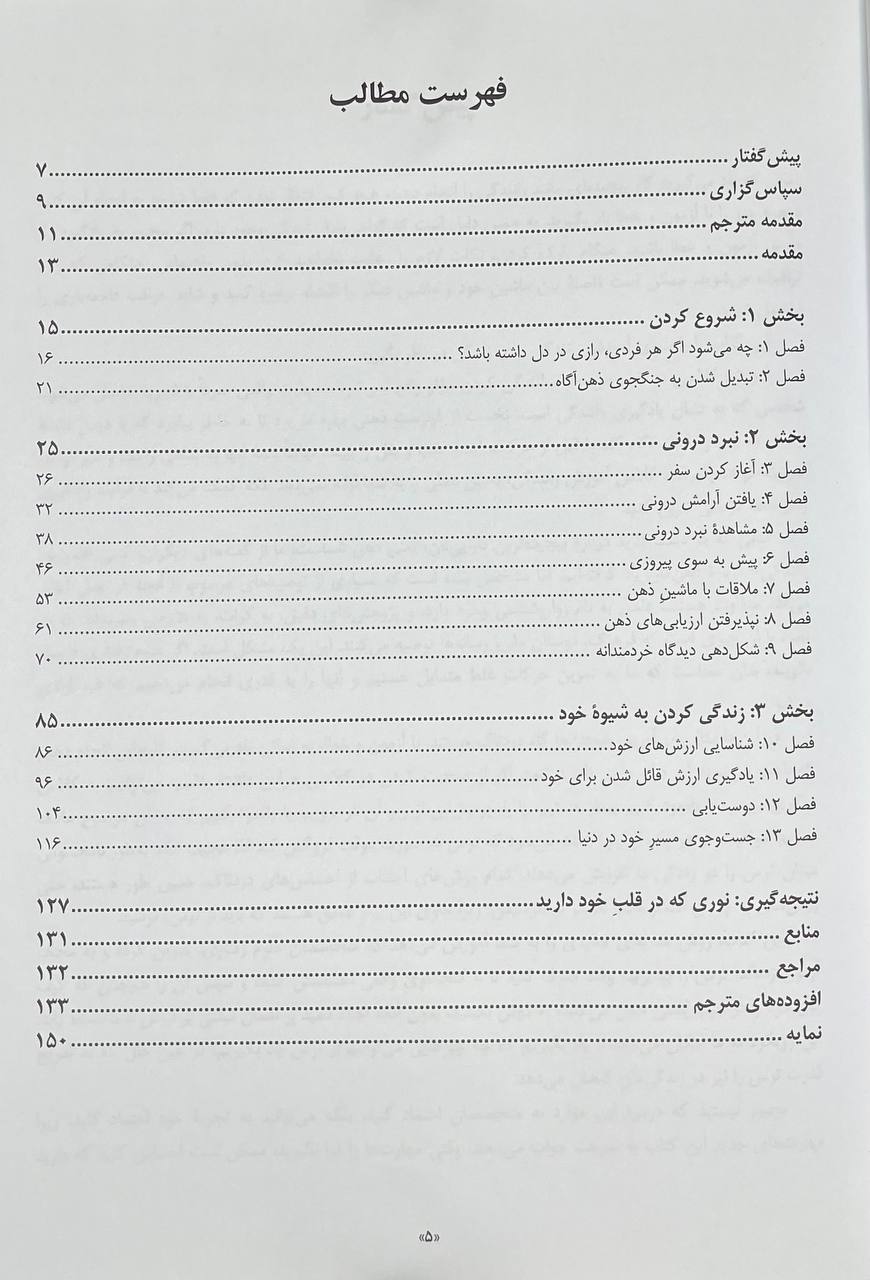 فهرست مطالب
پیش‌گفتار ........ ۷
سپاس‌گزاری ........ ۹
مقدمه مترجم ........ ۱۱
مقدمه ........ ۱۳
بخش ۱: شروع کردن ........ ۱۵
فصل ۱: چه می‌شود اگر هر فردی، رازی در دل داشته باشد؟ ........ ۱۶
فصل ۲: تبدیل شدن به جنگجوی ذهن‌آگاه ........ ۲۱
بخش ۲: نبرد درونی ........ ۲۵
فصل ۳: آغاز کردن سفر ........ ۲۶
فصل ۴: یافتن آرامش درونی ........ ۳۲
فصل ۵: مشاهدهٔ نبرد درونی ........ ۳۸
فصل ۶: پیش به سوی پیروزی ........ ۴۶
فصل ۷: ملاقات با ماشینِ ذهن ........ ۵۳
فصل ۸: نپذیرفتن ارزیابی‌های ذهن ........ ۶۱
فصل ۹: شکل‌دهی دیدگاه خردمندانه ........ ۷۰
بخش ۳: زندگی کردن به شیوهٔ خود ........ ۸۵
فصل ۱۰: شناسایی ارزش‌های خود ........ ۸۶
فصل ۱۱: یادگیری ارزش قائل شدن برای خود ........ ۹۶
فصل ۱۲: دوست‌یابی ........ ۱۰۴
فصل ۱۳: جست‌وجوی مسیرِ خود در دنیا ........ ۱۱۶
نتیجه‌گیری: نوری که در قلبِ خود دارید ........ ۱۲۷
منابع ........ ۱۳۱
مراجع ........ ۱۳۲
افزوده‌های مترجم ........ ۱۳۳
نمایه ........ ۱۵۰
«۵»